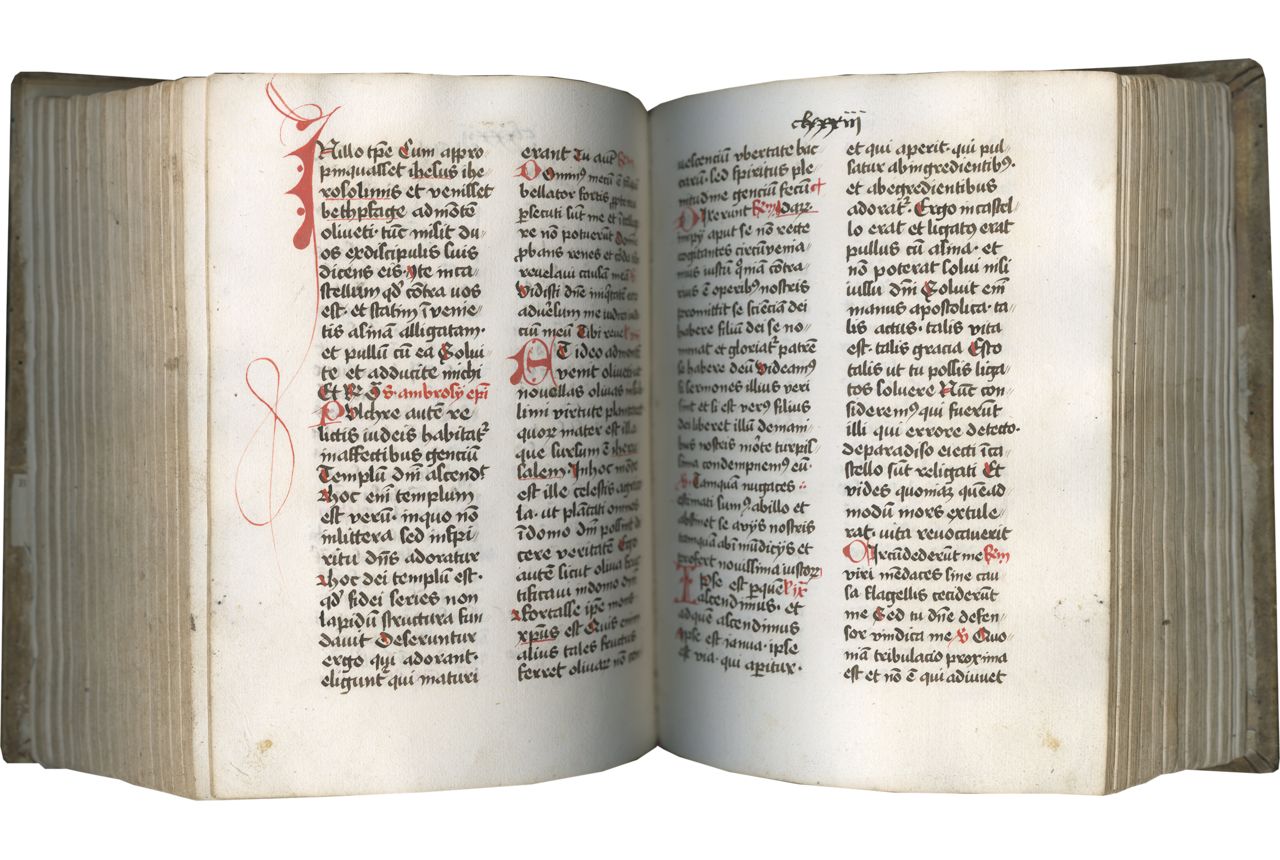 In illo tp̄e Cum appro
pinquasset ihesus ihe
rosolimis et venisset
bethphage ad mōtē
oliueti· tūc misit du
os ex discipulis suis
dicens eis· Ite in ca
stellum qd̓ cōtra uos
est· et statim īvenie
tis asinā alligatam·
et pullū cū ea Solui
te et adducite michi
Et R̄ O S· ambrosÿ epī
Pulchre autē re
lictis iudeis habitat᷑
in affectibus genciū
Templū dn̄i ascend᷑
hoc eni templum
est verū· in quo nō
in littera sed in spi
ritu dn̄s adoratur
hoc dei templū est·
qd̓ fidei series non
lapidū structura fun
dauit Deseruntur
ergo qui adorant·
eligunt᷑ qui maturi
erant Tu autē
Dominus mecū ē
bellator fortis
ꝑsecuti sūt me et
re nō potuerūt
ꝓbans renes et
reuelaui causam meā
Vidisti dn̄e
aduersum me
cium meū Tibi reue
At ideo ad montē
venit oliueti
nouellas oliuas
limi virtute
quoꝝ mater est illa
que sursum ē iheru
salem In hoc mōte
est ille celestis
la· ut plātati omnes
ī domo dn̄i
cere veritatē Ergo
autē sicut oliua
tificaui in domo dn̄i
fortasse ip̄e mons
xp̄us est Quis enim
alius tales fructus
ferret oliuaꝝ nō
clxxxiii
vbertate bac
caꝝ· sed spiritus ple
nitudine genciū
Dixerunt
impÿ aput se nō recte
cogitantes circūvenia
mus iustū qm̄ōā cōtra
rius ē operibꝰ nostris
promittit se scienciā dei
habere filiū dei se no
minat et gloriat᷑ patrē
se habere deū Videamꝰ
si sermones illius veri
sunt et si est verꝰ filius
dei liberet illū de mani
bus nostris mōte turpis
sima condempnemꝰ eū·
Tamquā nugaces
estimati sumꝰ ab illo et
abstinet se a vÿs nostris
tamquā ab īmūdicÿs et
prefert novissima iustoꝝ
Ipse est per quē
ascendimus· et
ad quē ascendimus
ipse est ianua· ipse
est via· qui aperitur·
et qui aperit· qui pul
satur ab ingredientibꝰ·
et ab egredientibus
adorat᷑· Ergo in castel
lo erat et ligatꝰ erat
pullus cū asina· et
nō poterat solui nisi
iussu dn̄i Soluit em̄
manus apostolica· ta
lis actus· talis vita
est· talis gracia Esto
talis ut tu possis liga
tos soluere Nūc con
sideremꝰ qui fuerūt
illi qui errore detecto·
de paradiso eiecti ī ca
stello sūt religati Et
vides quoniā quēad
modū mors extule
rat· uita reuocauerit
Circūdederūt me
viri mēdaces sine cau
sa flagellis ceciderūt
me Sed tu dn̄e defen
sor vindica me V Quo
niā tribulacio proxima
est et nō ē qui adiuuet